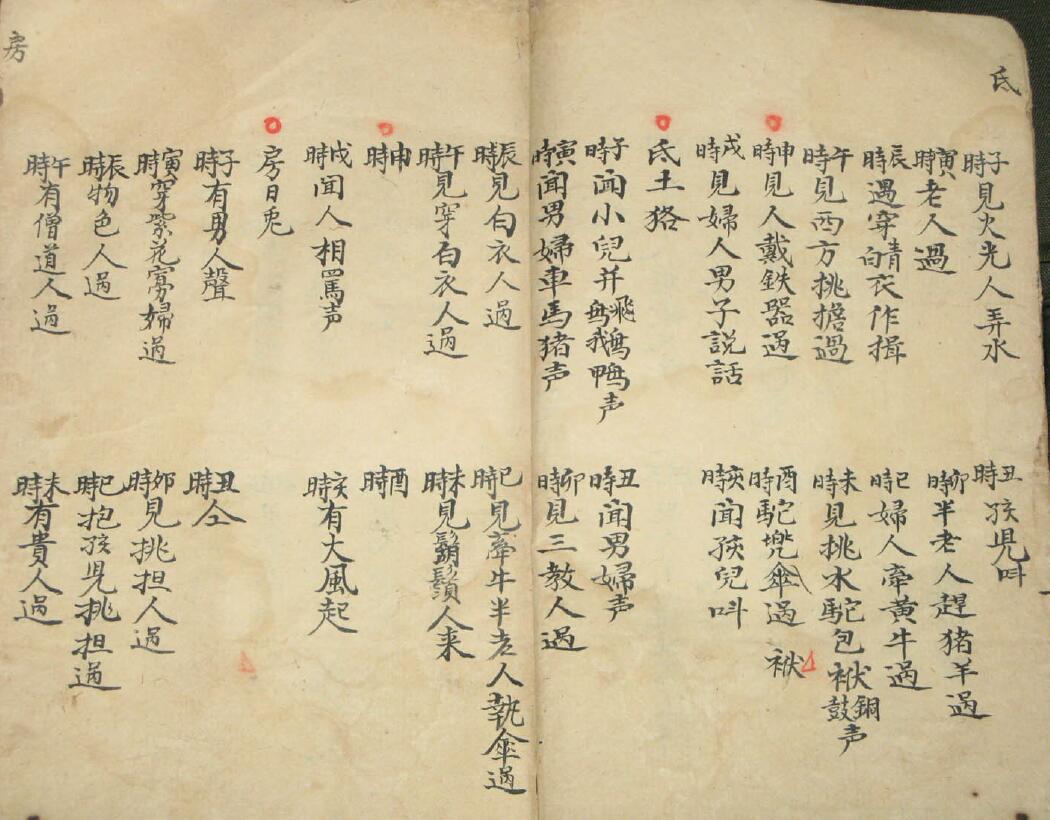 氐
子時見火光人弄水
丑時孩児呌
寅時老人過
卯時半老人趕猪羊過
辰時遇穿青白衣作揖
巳時婦人牽黃牛過
午時見西方挑擔過
未時見挑水駝包袱銅鼓声
申時見人戴鉄器過
酉時駝兠傘過 袱
戌時見婦人男子説話
亥時闻孩兒呌
氐土狢
子時闻小兒并飛無鵝鴨声
丑時闻男婦声
寅時闻男婦車馬猪声
卯時見三教人過
辰時見白衣人過
巳時見牽牛半老人執傘過
午時見穿白衣人過
未時見鬍鬚人来
申時
酉時
戌時闻人相罵声
亥時有大風起
房日兎
子時有男人聲
丑時仝
寅時穿紫花寡婦過
卯時見挑担人過
辰時物色人過
巳時抱孩児挑担過
午時有僧道人過
未時有貴人過
房